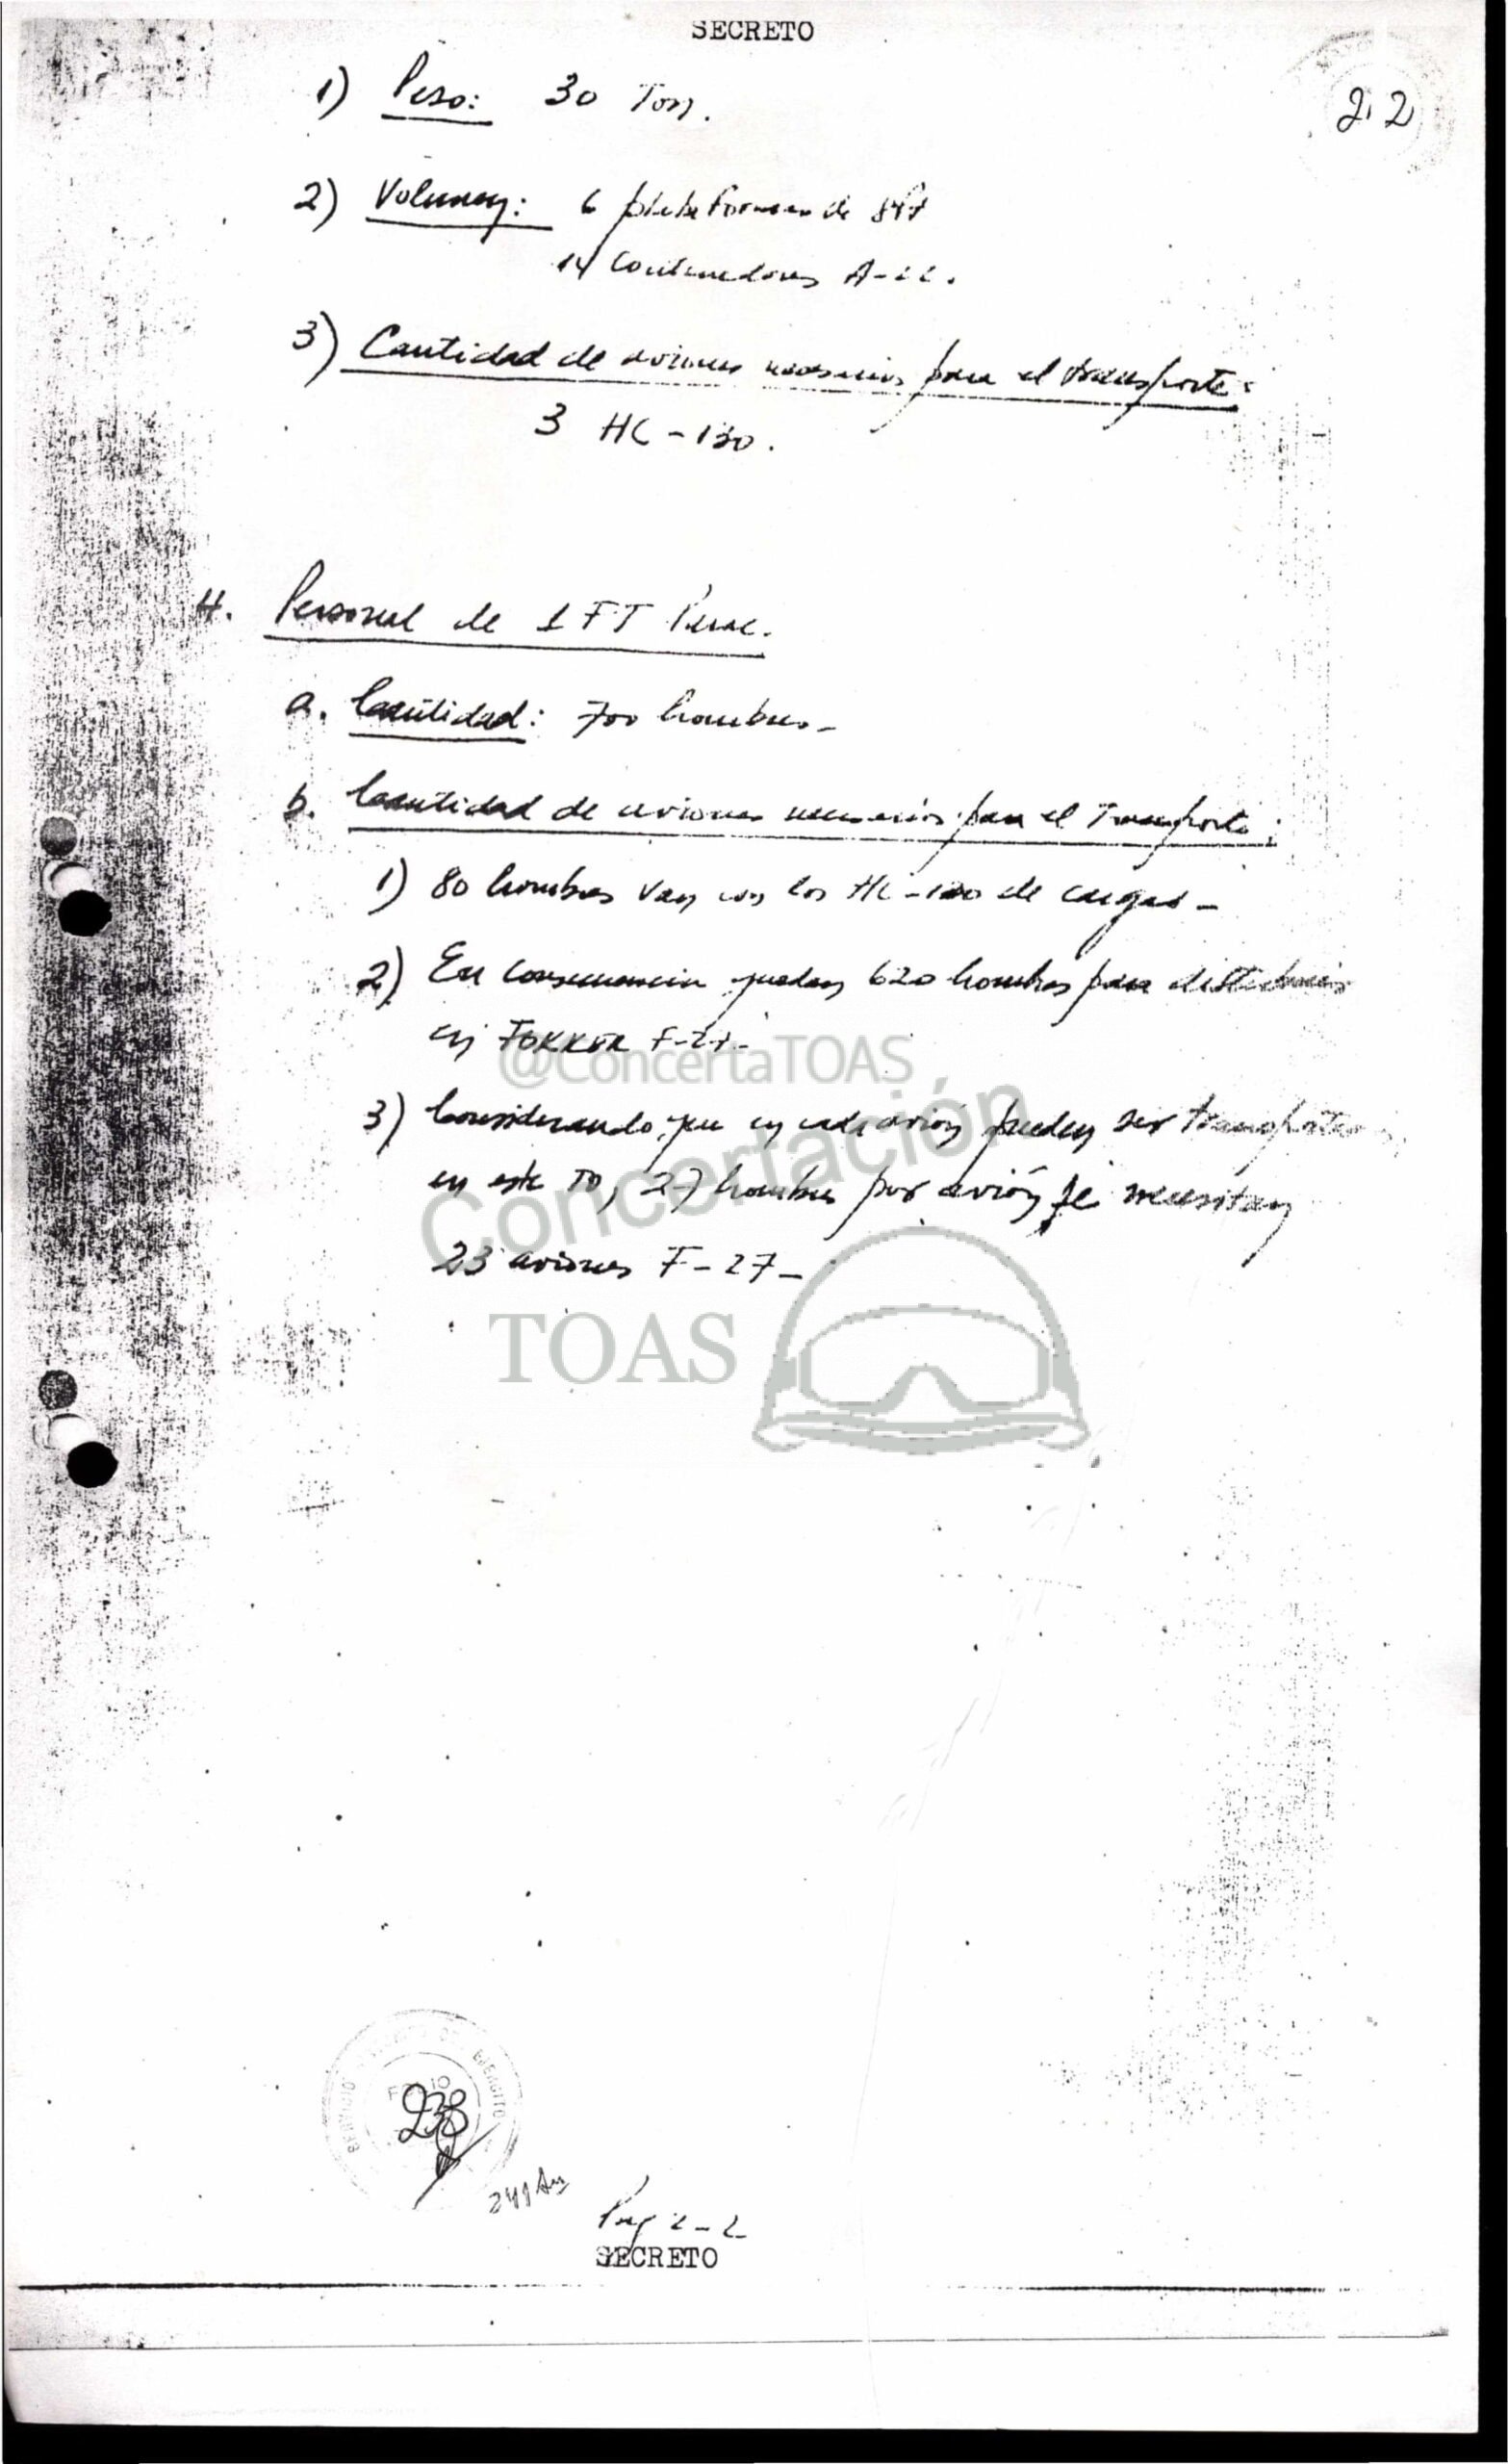 SECRETO
22
1) Peso: 30 Ton.
2) Volumen: 6 plataformas de
14 Contenedores A-22.
3) Cantidad de aviones necesarios para el transporte:
3 HC-130.
4. Personal de 1 FT Parac.
a. Cantidad: 700 hombres-
b. Cantidad de aviones necesarios para el Transporte:
1) 80 hombres van con los HC-130 de cargas-
2) En consecuencia quedan 620 hombres para
en FOKKER F-27-
@ConcertaTOAS
3) Considerando que en cada avión pueden ser
Concertación
en este TO, 27 hombres por avión se necesitan
23 aviones F-27-
TOAS
EJERCITO
FOLIO
238
241
Pag 2-2
SECRETO